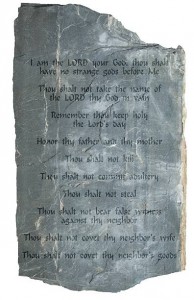 I am the LORD your God, thou shalt
have no strange gods before Me
Thou shalt not take the name of
the LORD thy God in vain
Remember thou keep holy
the Lord's day
Honor thy father and thy mother
Thou shalt not kill
Thou shalt not commit adultery
Thou shalt not steal
Thou shalt not bear false witness
against thy neighbor
Thou shalt not covet thy neighbor's wife
Thou shalt not covet thy neighbor's goods